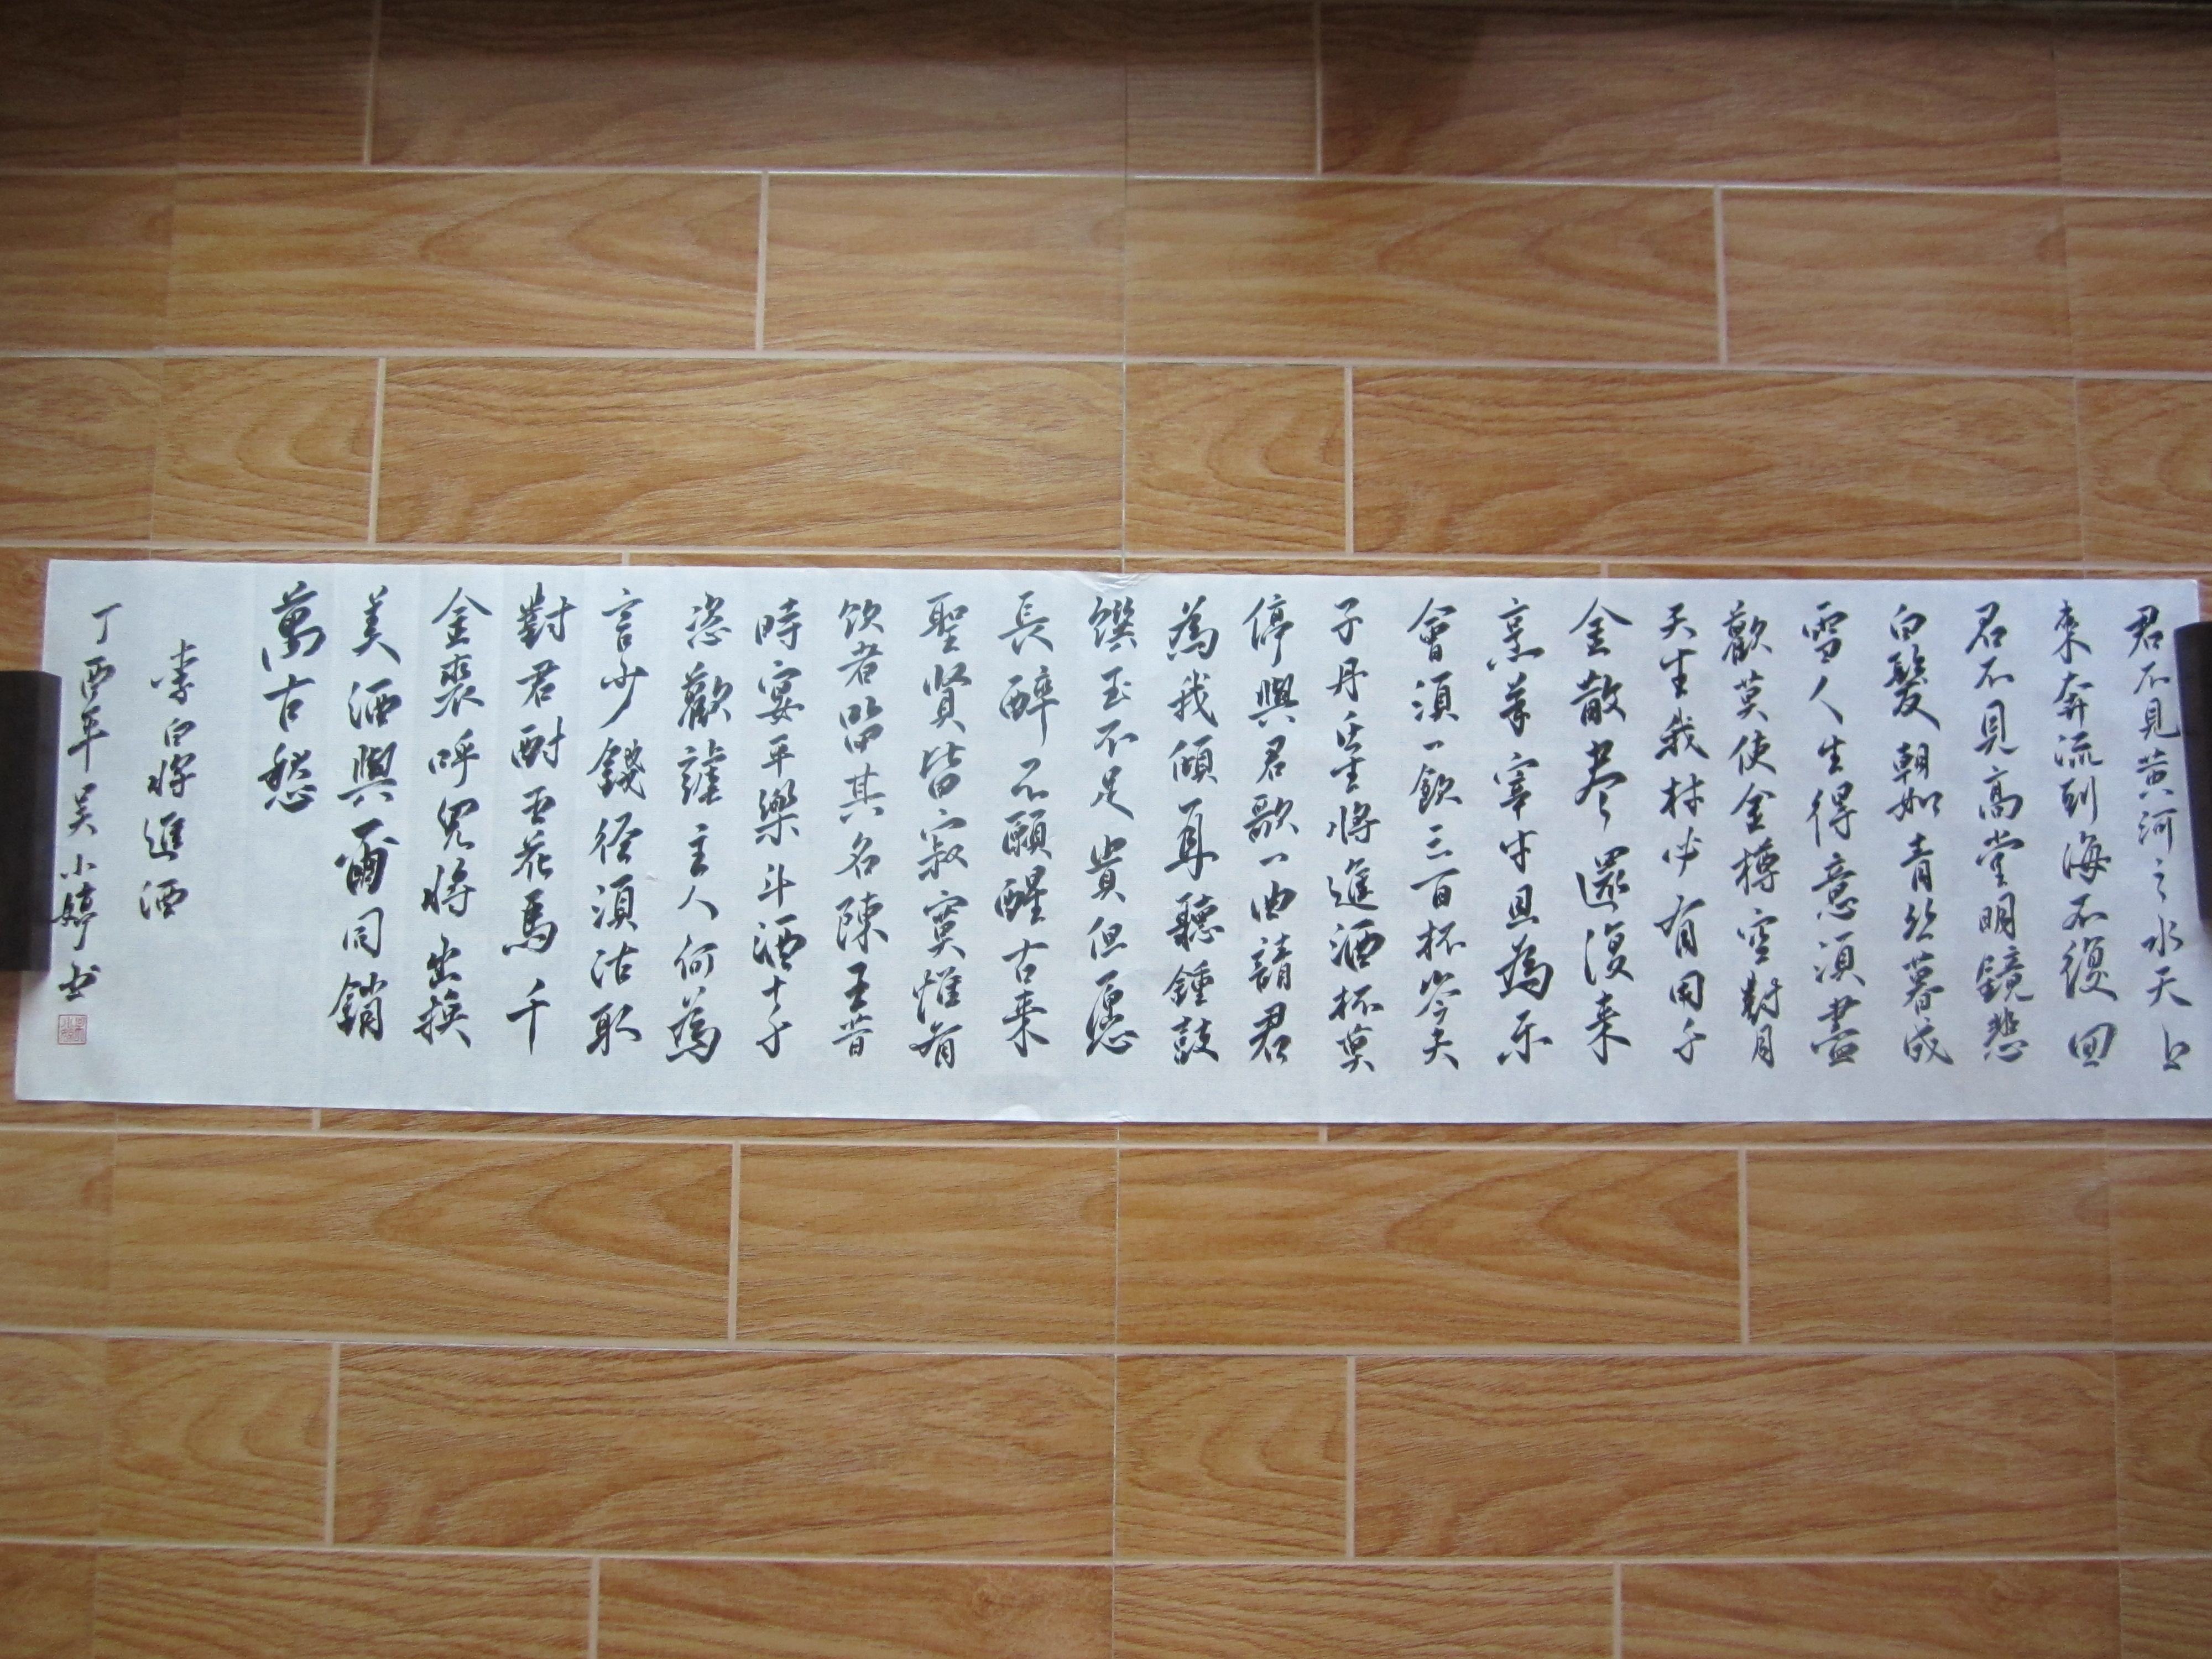 君不見黄河之水天上
來奔流到海不復回
君不見高堂明鏡悲
白髮朝如青丝暮成
雪人生得意須盡
歡莫使金樽空對月
天生我材必有用千
金散尽還復来
烹羊宰牛且為乐
會須一飲三百杯岑夫
子丹丘生將進酒杯莫
停與君歌一曲請君
為我傾耳聽鍾鼓
饌玉不足貴但愿
長醉不願醒古来
聖賢皆寂寞惟有
饮者留其名陳王昔
時宴平樂斗酒十千
恣歡謔主人何為
言少錢径須沽取
對君酎五花馬千
金裘呼兒将出换
美酒與爾同銷
萬古愁
李白将進酒
丁酉年吴小婷书